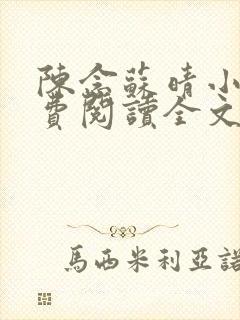 陳念蘇晴小
費閱讀全文
馬西米利亞諾